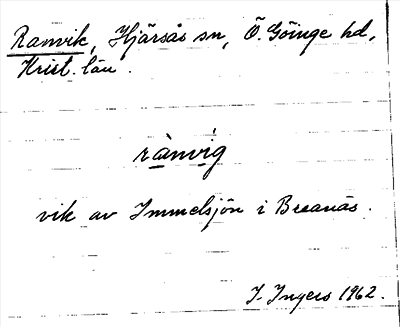 Ranvik, Hjärsås sn, Ö. Göinge hd,
Krist. län.
rànvig
vik av Immelsjön i Breanäs.
I. Ingers 1962.